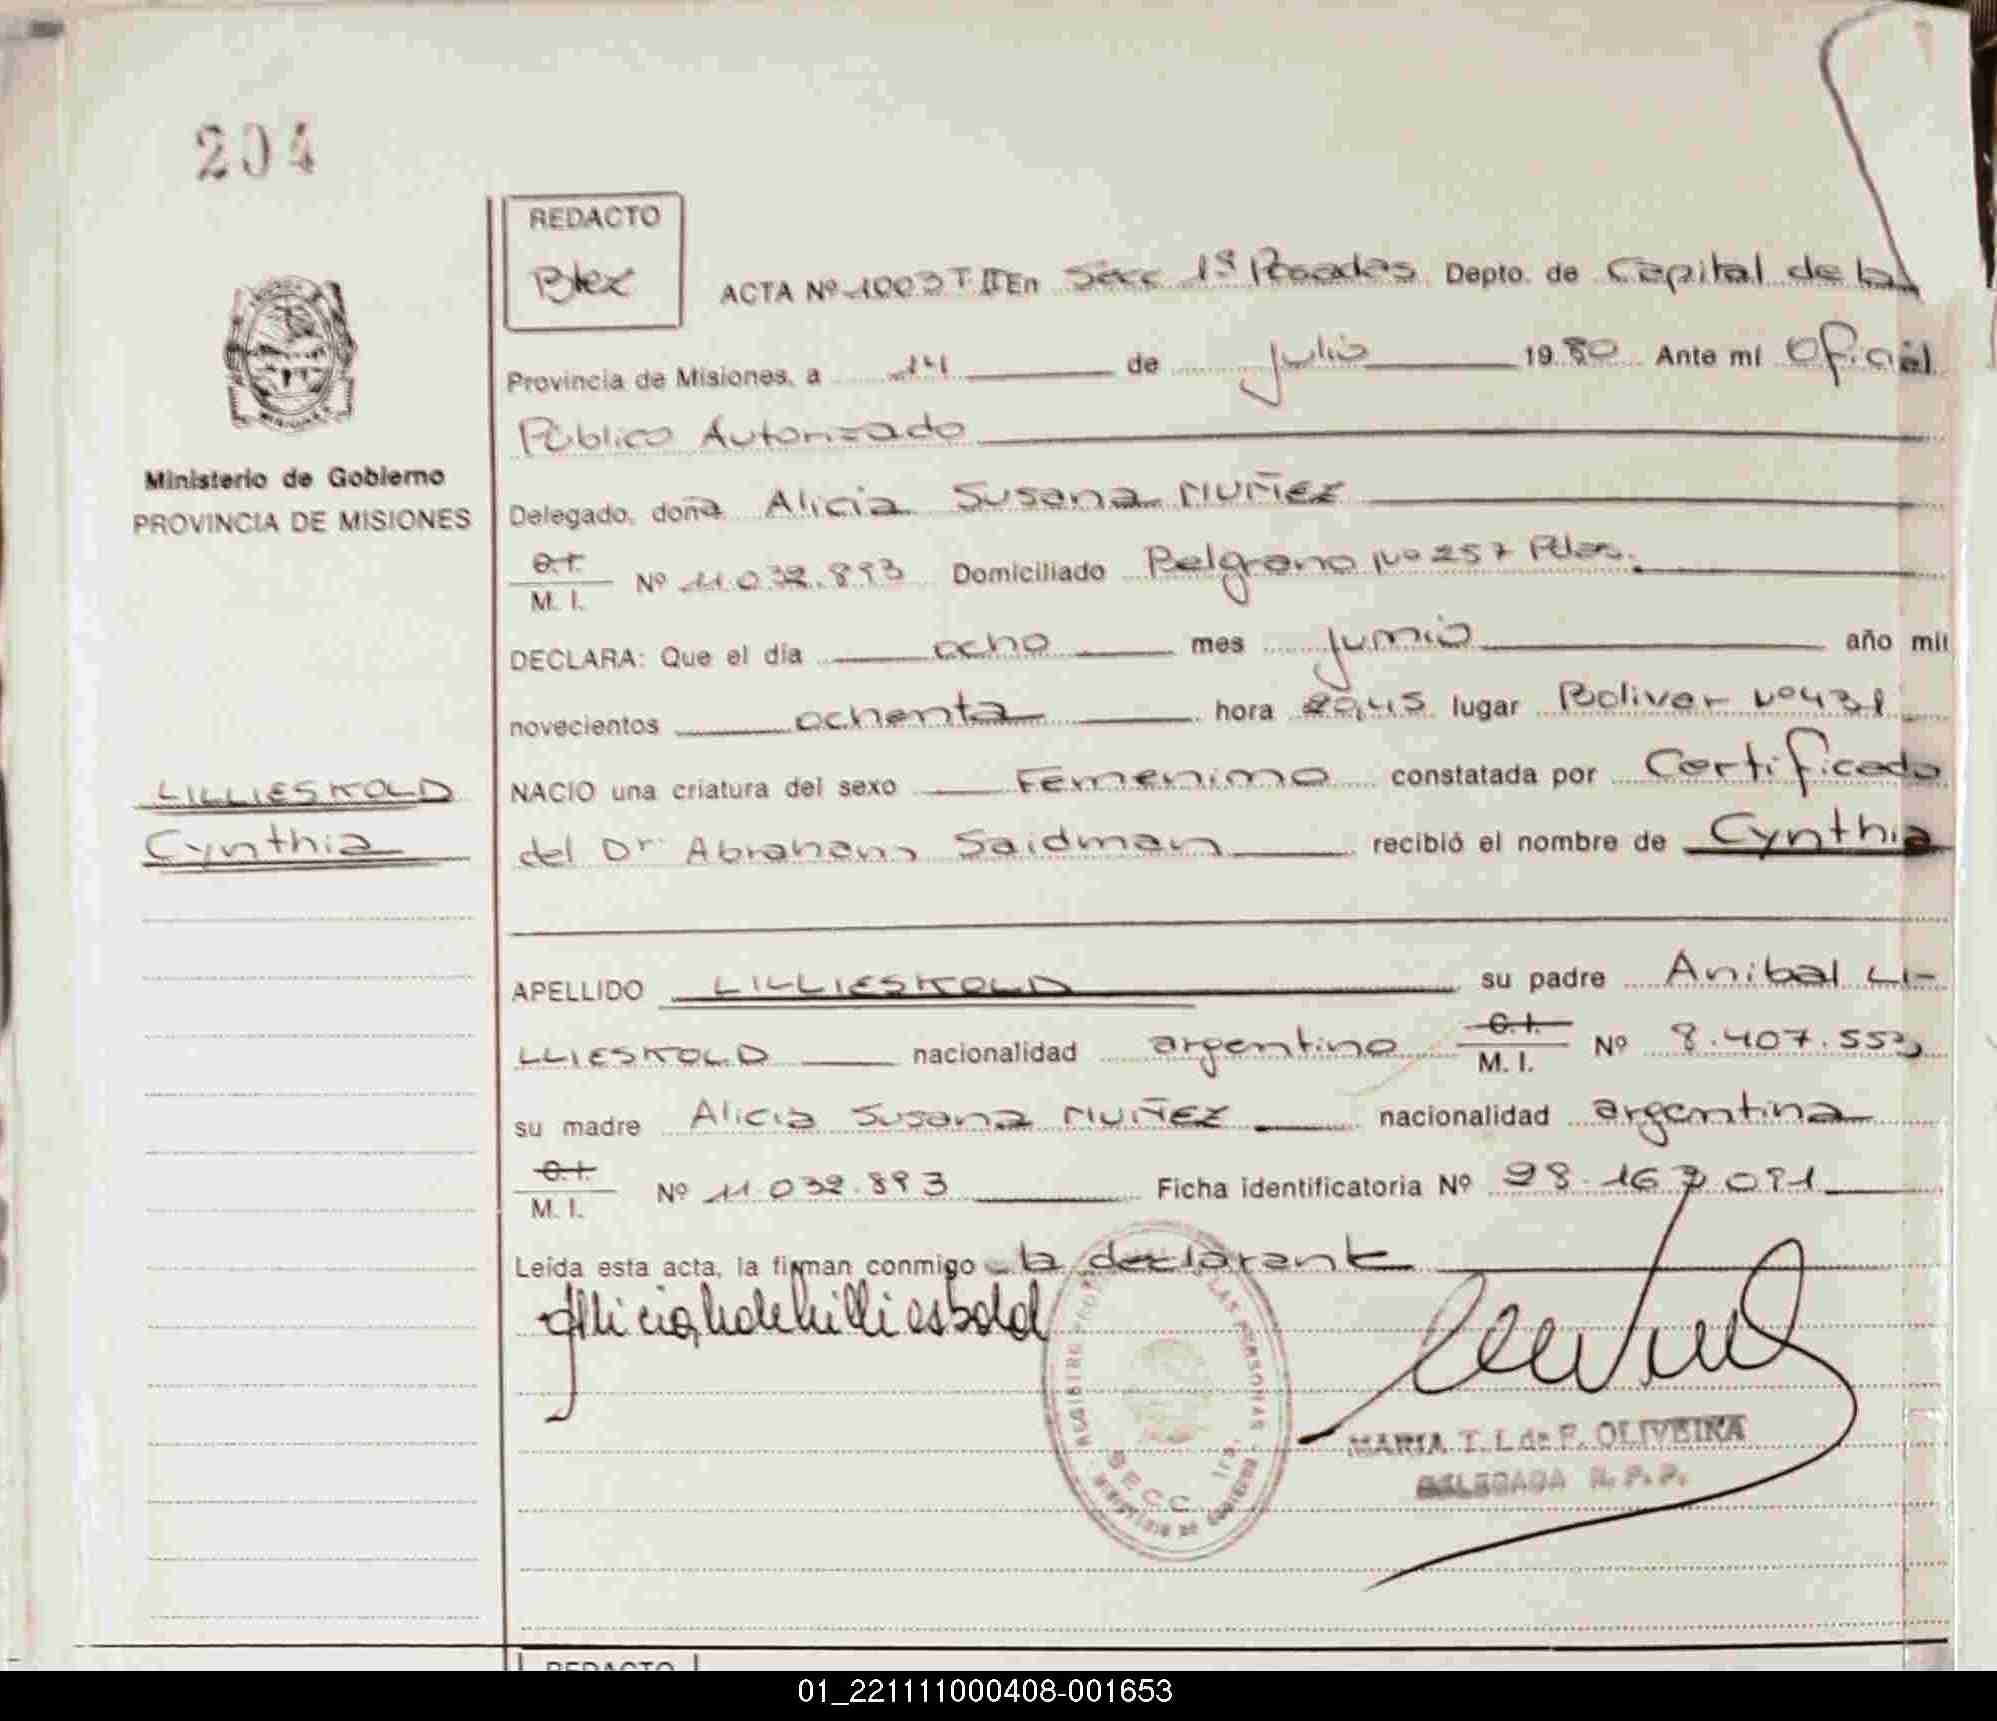 204
REDACTO
ACTA Nº 1003 T II En Secc 1ª Posadas Depto. de Capital de la
Provincia de Misiones, a 14 de Julio 19 80 Ante mí Oficial
Público Autorizado
Ministerio de Gobierno
PROVINCIA DE MISIONES
Delegado, doña Alicia Susana MUÑEZ
C.I. M. I. Nº 11.032.893 Domiciliado Belgrano Nº 257 Pdas.
DECLARA: Que el día ocho mes junio año mil
novecientos ochenta hora 20,45 lugar Bolivar Nº 431
LILLIESKOLD
NACIO una criatura del sexo Femenino constatada por Certificado
Cynthia
del Dr Abraham Saidman recibió el nombre de Cynthia
APELLIDO LILLIESKOLD su padre Anibal LI-
LLIESKOLD nacionalidad argentino C.I. M. I. Nº 8.407.553
su madre Alicia Susana MUÑEZ nacionalidad argentina
C.I. M. I. Nº 11.032.893 Ficha identificatoria Nº 28.167.091
Leída esta acta, la firman conmigo la declarante
MARIA T. L. de F. OLIVEIRA
DELEGADA R. P. P.
SECC. 1ra.
REDACTO
01_221111000408-001653